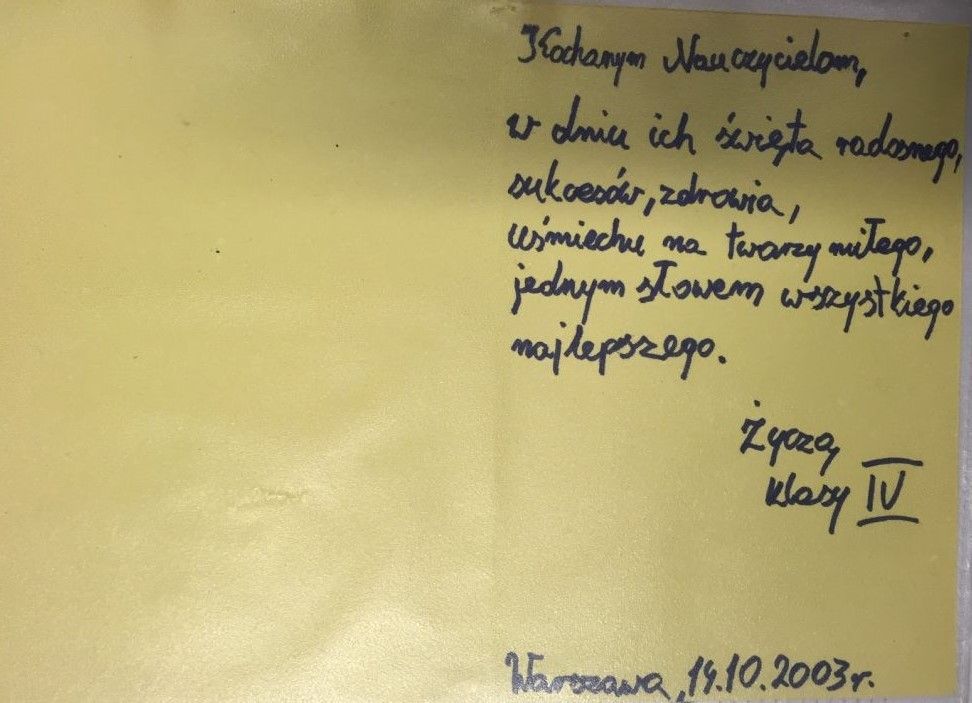 Kochanym Nauczycielom,
w dniu ich święta radosnego,
sukcesów, zdrowia,
uśmiechu na twarzy miłego,
jednym słowem wszystkiego
najlepszego.
Życzą
klasy IV
Warszawa, 14.10.2003r.